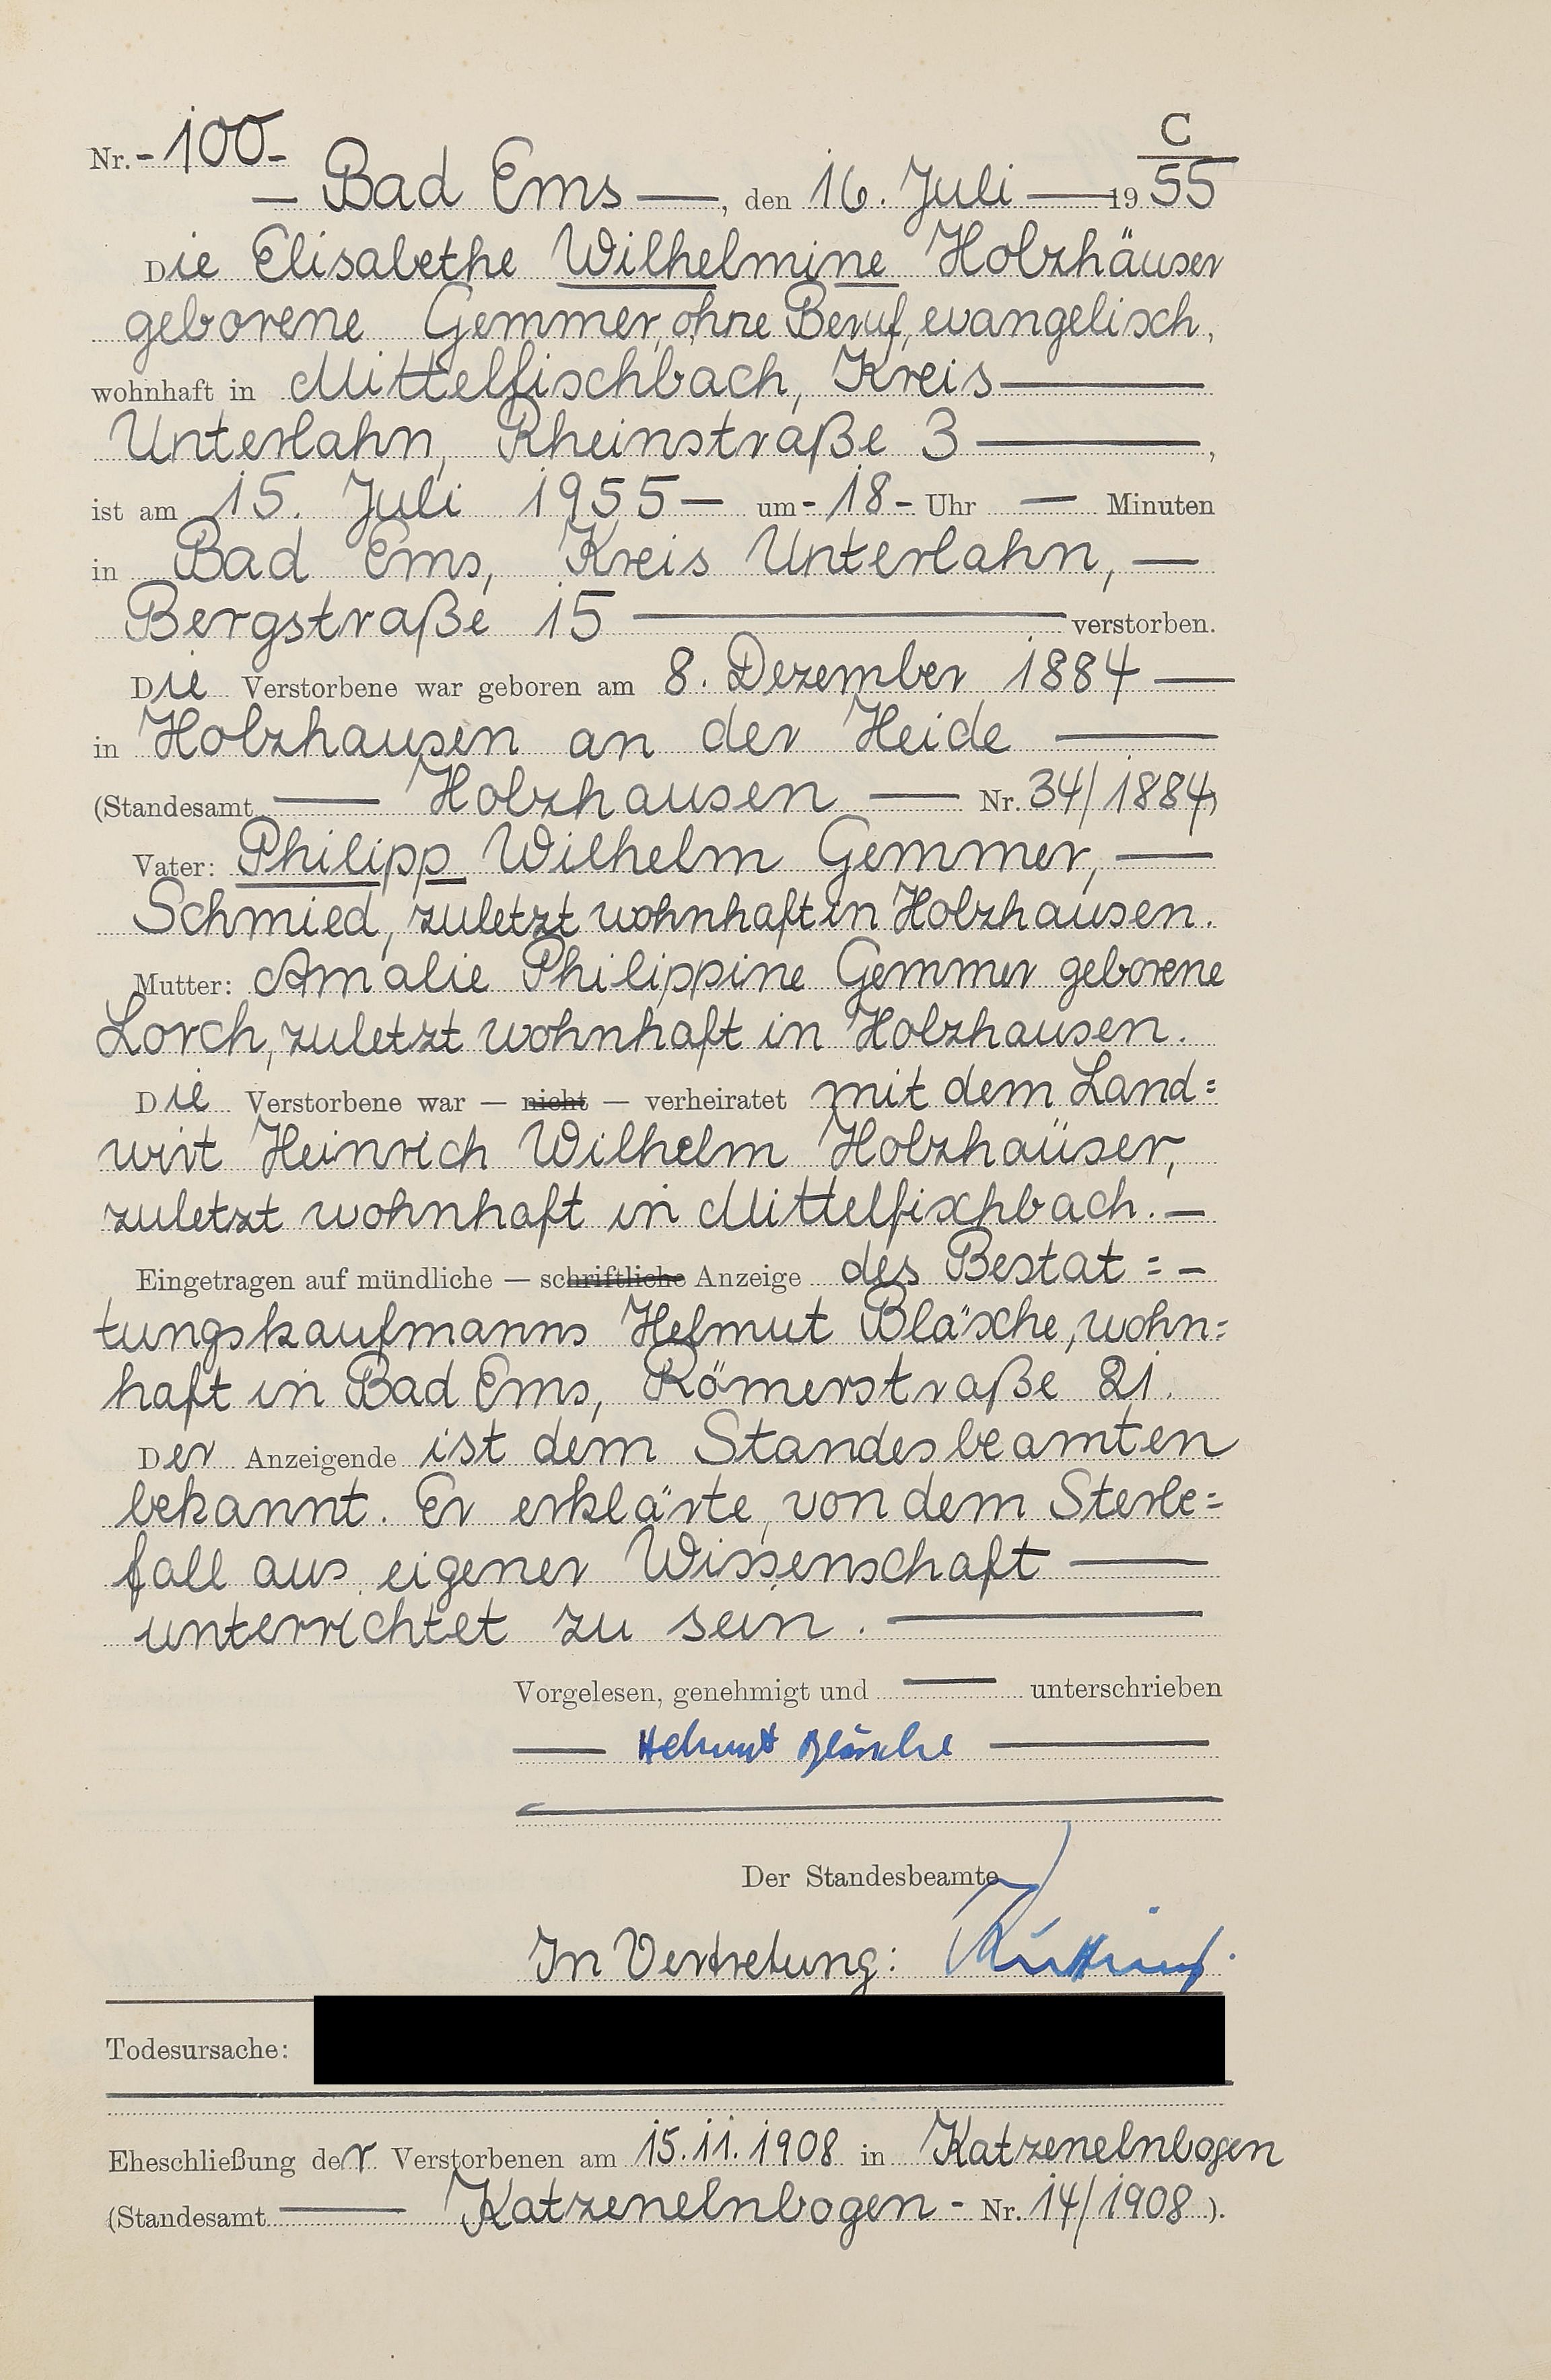 C
Nr. - 100 -
— Bad Ems —, den 16. Juli — 19 55
Die Elisabethe Wilhelmine Holzhäuser
geborene Gemmer, ohne Beruf, evangelisch,
wohnhaft in Mittelfischbach, Kreis —
Unterlahn, Rheinstraße 3 —,
ist am 15. Juli 1955 — um - 18 - Uhr — Minuten
in Bad Ems, Kreis Unterlahn, —
Bergstraße 15 — verstorben.
Die Verstorbene war geboren am 8. Dezember 1884 —
in Holzhausen an der Heide —
(Standesamt — Holzhausen — Nr. 34/1884)
Vater: Philipp Wilhelm Gemmer, —
Schmied, zuletzt wohnhaft in Holzhausen.
Mutter: Amalie Philippine Gemmer geborene
Lorch, zuletzt wohnhaft in Holzhausen.
Die Verstorbene war — nicht — verheiratet mit dem Land=
wirt Heinrich Wilhelm Holzhaüser,
zuletzt wohnhaft in Mittelfischbach. —
Eingetragen auf mündliche — schriftliche Anzeige des Bestat= -
tungskaufmanns Helmut Bläsche, wohn=
haft in Bad Ems, Römerstraße 21.
Der Anzeigende ist dem Standesbeamten
bekannt. Er erklärte, von dem Sterbe=
fall aus eigener Wissenschaft —
unterrichtet zu sein. —
Vorgelesen, genehmigt und — unterschrieben
— Helmut Bläsche —
Der Standesbeamte
In Vertretung:
Todesursache:
Eheschließung der Verstorbenen am 15.11.1908 in Katzenelnbogen
(Standesamt — Katzenelnbogen - Nr. 14/1908).